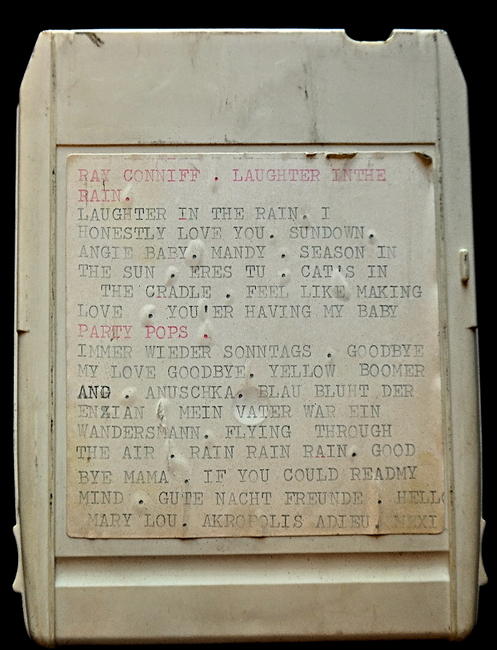 RAY CONNIFF . LAUGHTER INTHE
RAIN.
LAUGHTER IN THE RAIN. I
HONESTLY LOVE YOU. SUNDOWN.
ANGIE BABY. MANDY . SEASON IN
THE SUN . ERES TU . CAT'S IN
THE CRADLE . FEEL LIKE MAKING
LOVE . YOU'ER HAVING MY BABY
PARTY POPS .
IMMER WIEDER SONNTAGS . GOODBYE
MY LOVE GOODBYE. YELLOW BOOMER
AND . ANUSCHKA. BLAU BLUHT DER
ENZIAN . MEIN VATER WAR EIN
WANDERSMANN. FLYING THROUGH
THE AIR . RAIN RAIN RAIN. GOOD
BYE MAMA . IF YOU COULD READMY
MIND . GUTE NACHT FREUNDE . HELLO
MARY LOU. AKROPOLIS ADIEU. MEXI